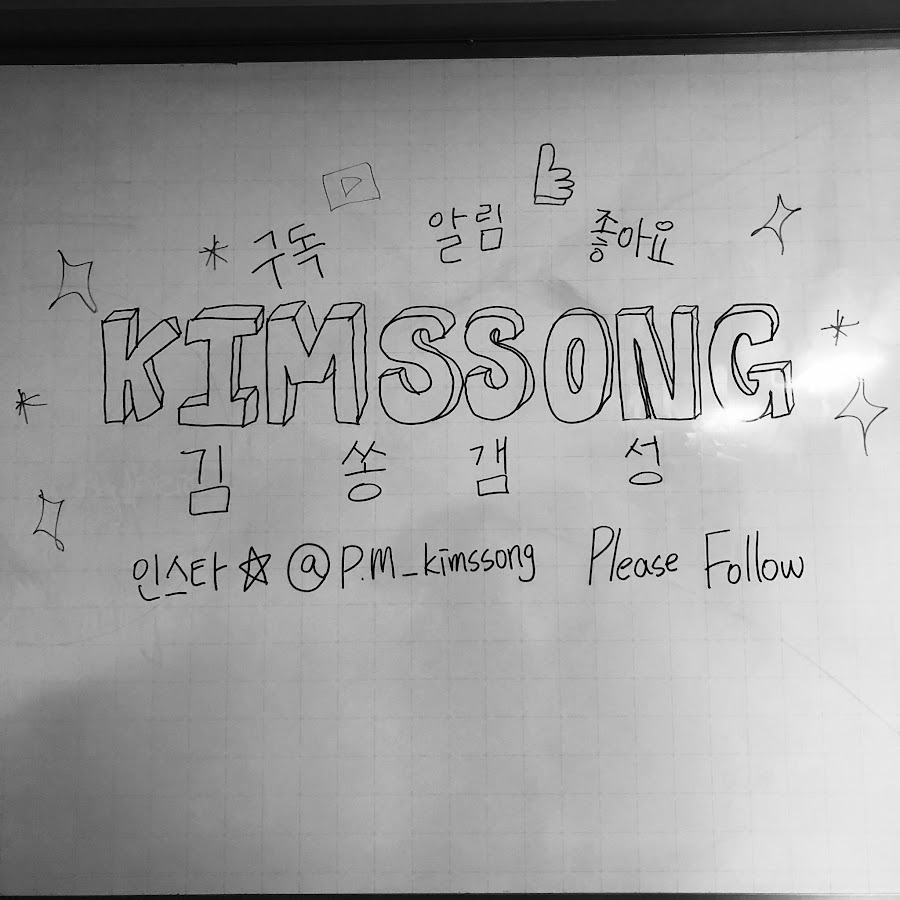 구독 알림 좋아요
KIMSSONG
김쏭갬성
인스타 @P.M_kimssong Please Follow